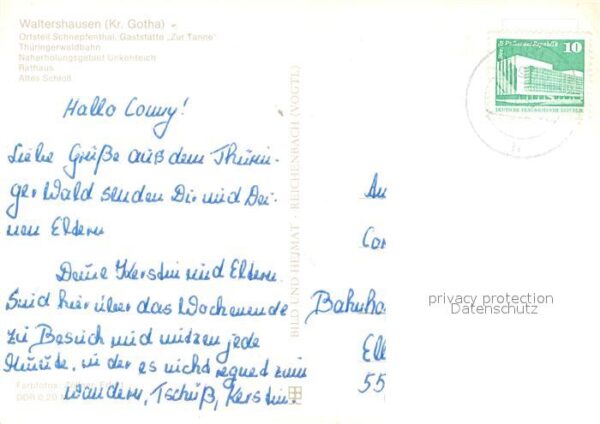 Waltershausen (Kr. Gotha)
Ortsteil Schnepfenthal, Gaststätte „Zur Tanne"
Thüringerwaldbahn
Naherholungsgebiet Gänkenteich
Rathaus
Altes Schloß
Palast der Republik
10
Hallo Conny!
Liebe Grüße aus dem Thürin-
ger Wald senden Dir und Dei-
nen Eltern
Deine Kerstin und Eltern.
Sind hier über das Wochenende
zu Besuch und nutzen jede
Minute, in der es nicht regnet zum
wandern, Tschüß, Kerstin!
BILD UND HEIMAT · REICHENBACH (VOGTL)
DDR 0,20
An
Con
Bahnho
Ell
55
privacy protection
Datenschutz